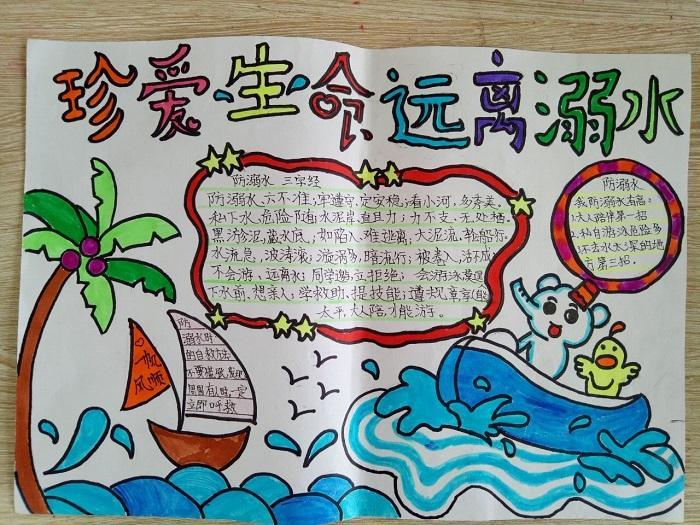 珍爱生命远离溺水
防溺水 三字经
防溺水,六不准,牢遵守,定安稳;看小河,多秀美,
私下水,危险随;水泥岸,
力不支,无处
黑淤泥,藏水底,如陷入,难逃离,大泥流,
水流急,波涛滚,漩涡多,暗流行;被卷入,活不成;
不会游,远离水;同学邀,立拒绝;会游泳莫逞
下水前,想亲人;学救助,提技能;遵规章,
太平,大人陪,才能游。
防溺水
我防溺水有高
1.大人陪伴第一招
2.私自游泳危险多
不去水太深的地
方第三招。
一帆
风顺
防
溺水时
的自救方法
不要慌张,发现
周围有人时,一定
立即呼救